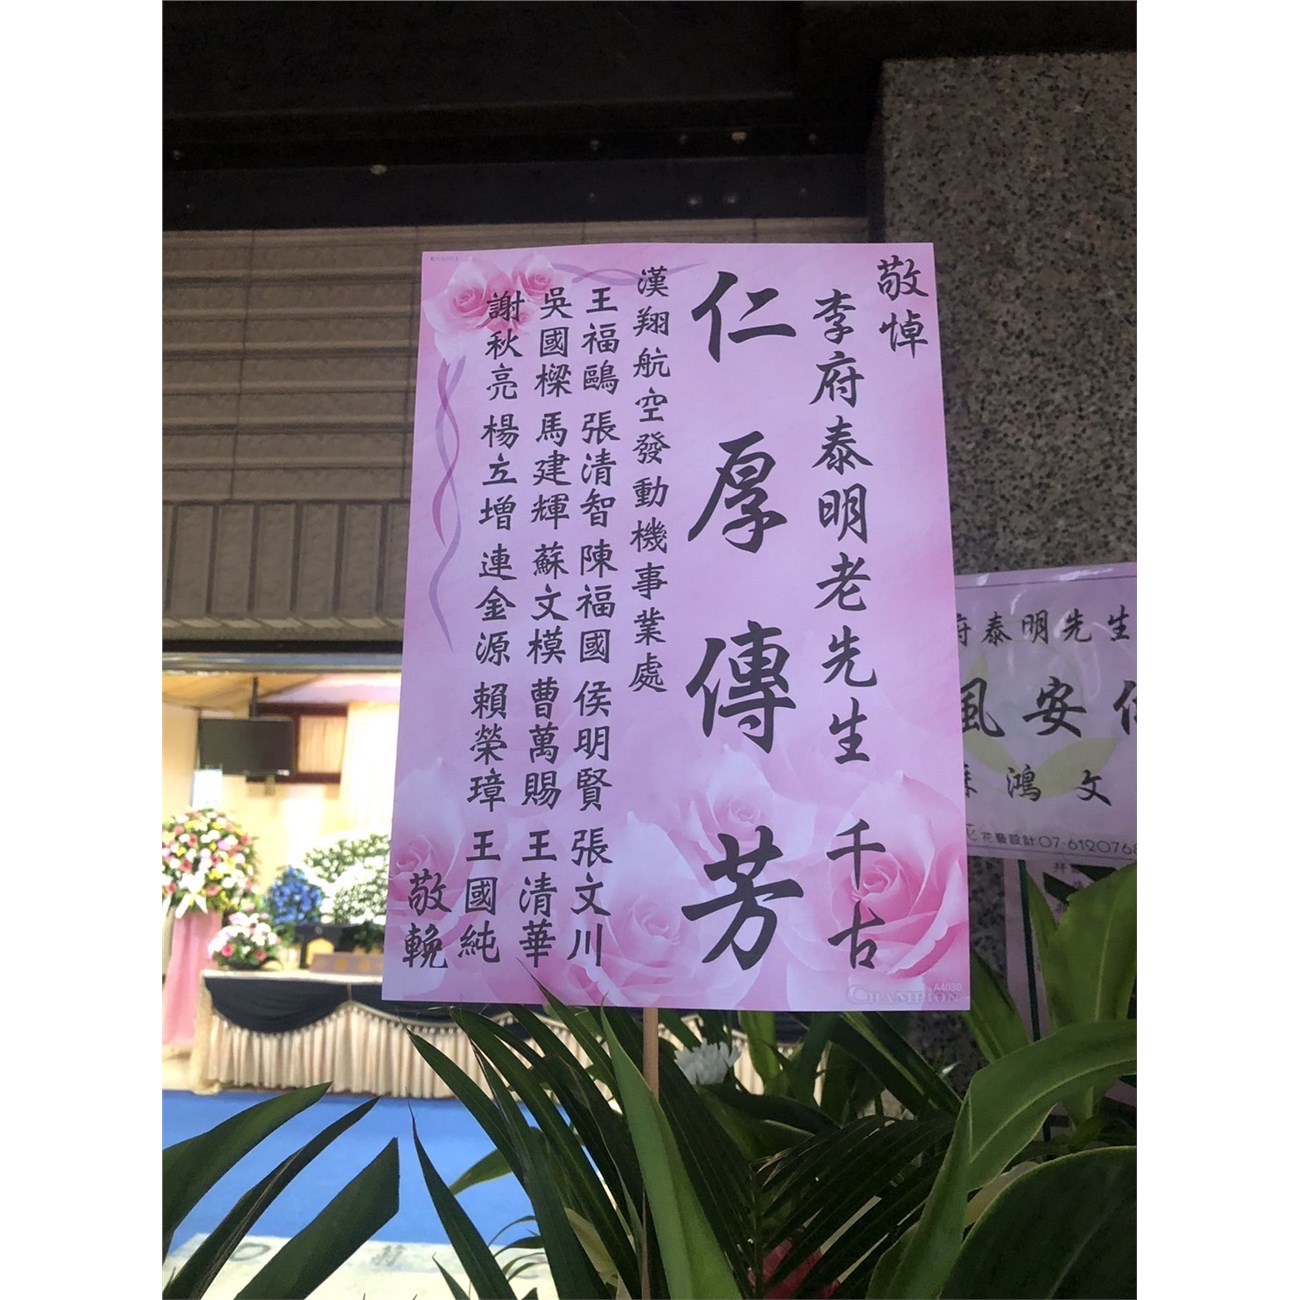 敬悼
李府泰明老先生 千古
仁厚傳芳
漢翔航空發動機事業處
王福鷗 張清智 陳福國 侯明賢 張文川
吳國樑 馬建輝 蘇文模 曹萬賜 王清華
謝秋亮 楊立增 連金源 賴榮璋 王國純
敬輓
CHAMPION
A4030
府泰明先生
風安
鴻文
花藝設計07-6120768